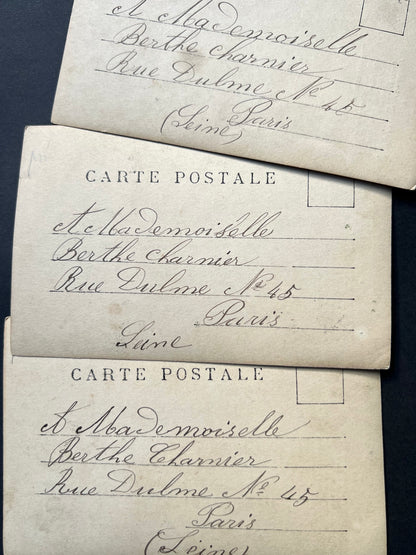 A Mademoiselle
Berthe Charnier
Rue Dulme No 45
Paris
(Seine)
CARTE POSTALE
A Mademoiselle
Berthe Charnier
Rue Dulme No 45
Paris
Seine
CARTE POSTALE
A Mademoiselle
Berthe Charnier
Rue Dulme No 45
Paris
(Seine)